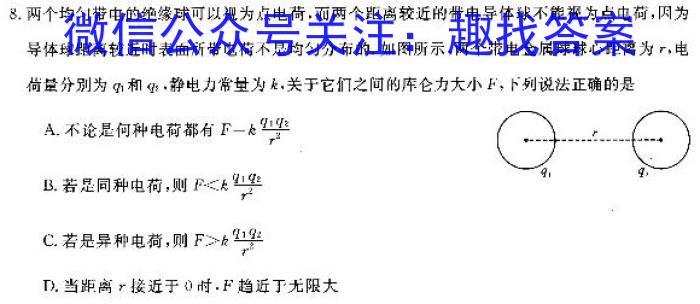 8. 两个均匀带电的绝缘球可以视为点电荷,而两个距离较近的带电导体球不能视为点电荷,因为
导体球距离较近时表面所带电荷不是均匀分布的.如图所示,两个带电金属球球心距离为 r,电
微信公众号关注:趣找答案
荷量分别为 q₁和 q₂,静电力常量为 k,关于它们之间的库仑力大小 F,下列说法正确的是
A. 不论是何种电荷都有 F=k q₁q₂/r²
B. 若是同种电荷,则 F<k q₁q₂/r²
C. 若是异种电荷,则 F>k q₁q₂/r²
D. 当距离 r 接近于 0 时,F 趋近于无限大
r
q₁ q₂